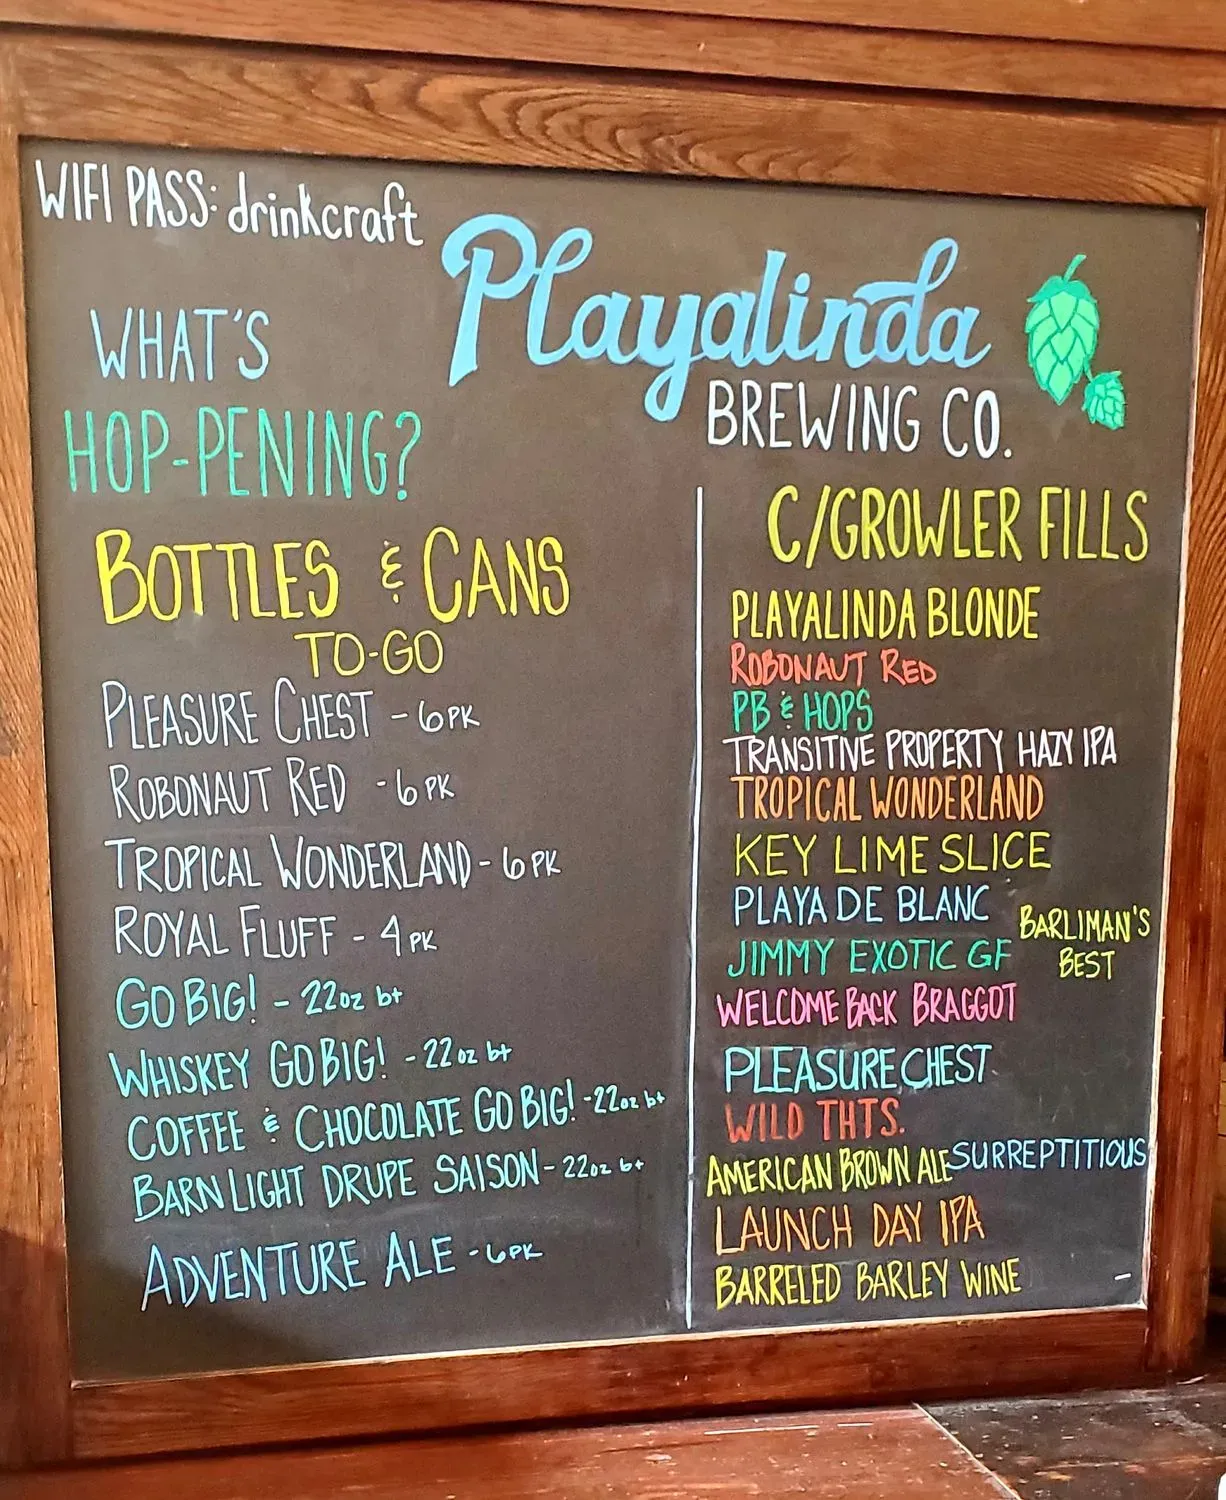 WIFI PASS: drinkcraft
Playalinda
BREWING CO.
WHAT'S
HOP-PENING?
BOTTLES & CANS
TO-GO
PLEASURE CHEST - 6PK
ROBONAUT RED - 6PK
TROPICAL WONDERLAND - 6PK
ROYAL FLUFF - 4PK
GO BIG! - 22oz bt
WHISKEY GO BIG! - 22oz bt
COFFEE & CHOCOLATE GO BIG! - 22oz bt
BARN LIGHT DRUPE SAISON - 22oz bt
ADVENTURE ALE - 6PK
C/GROWLER FILLS
PLAYALINDA BLONDE
ROBONAUT RED
PB & HOPS
TRANSITIVE PROPERTY HAZY IPA
TROPICAL WONDERLAND
KEY LIME SLICE
PLAYA DE BLANC
JIMMY EXOTIC GF
BARLIMAN'S
BEST
WELCOME BACK BRAGGOT
PLEASURE CHEST
WILD THTS.
AMERICAN BROWN ALE
SURREPTITIOUS
LAUNCH DAY IPA
BARRELED BARLEY WINE -